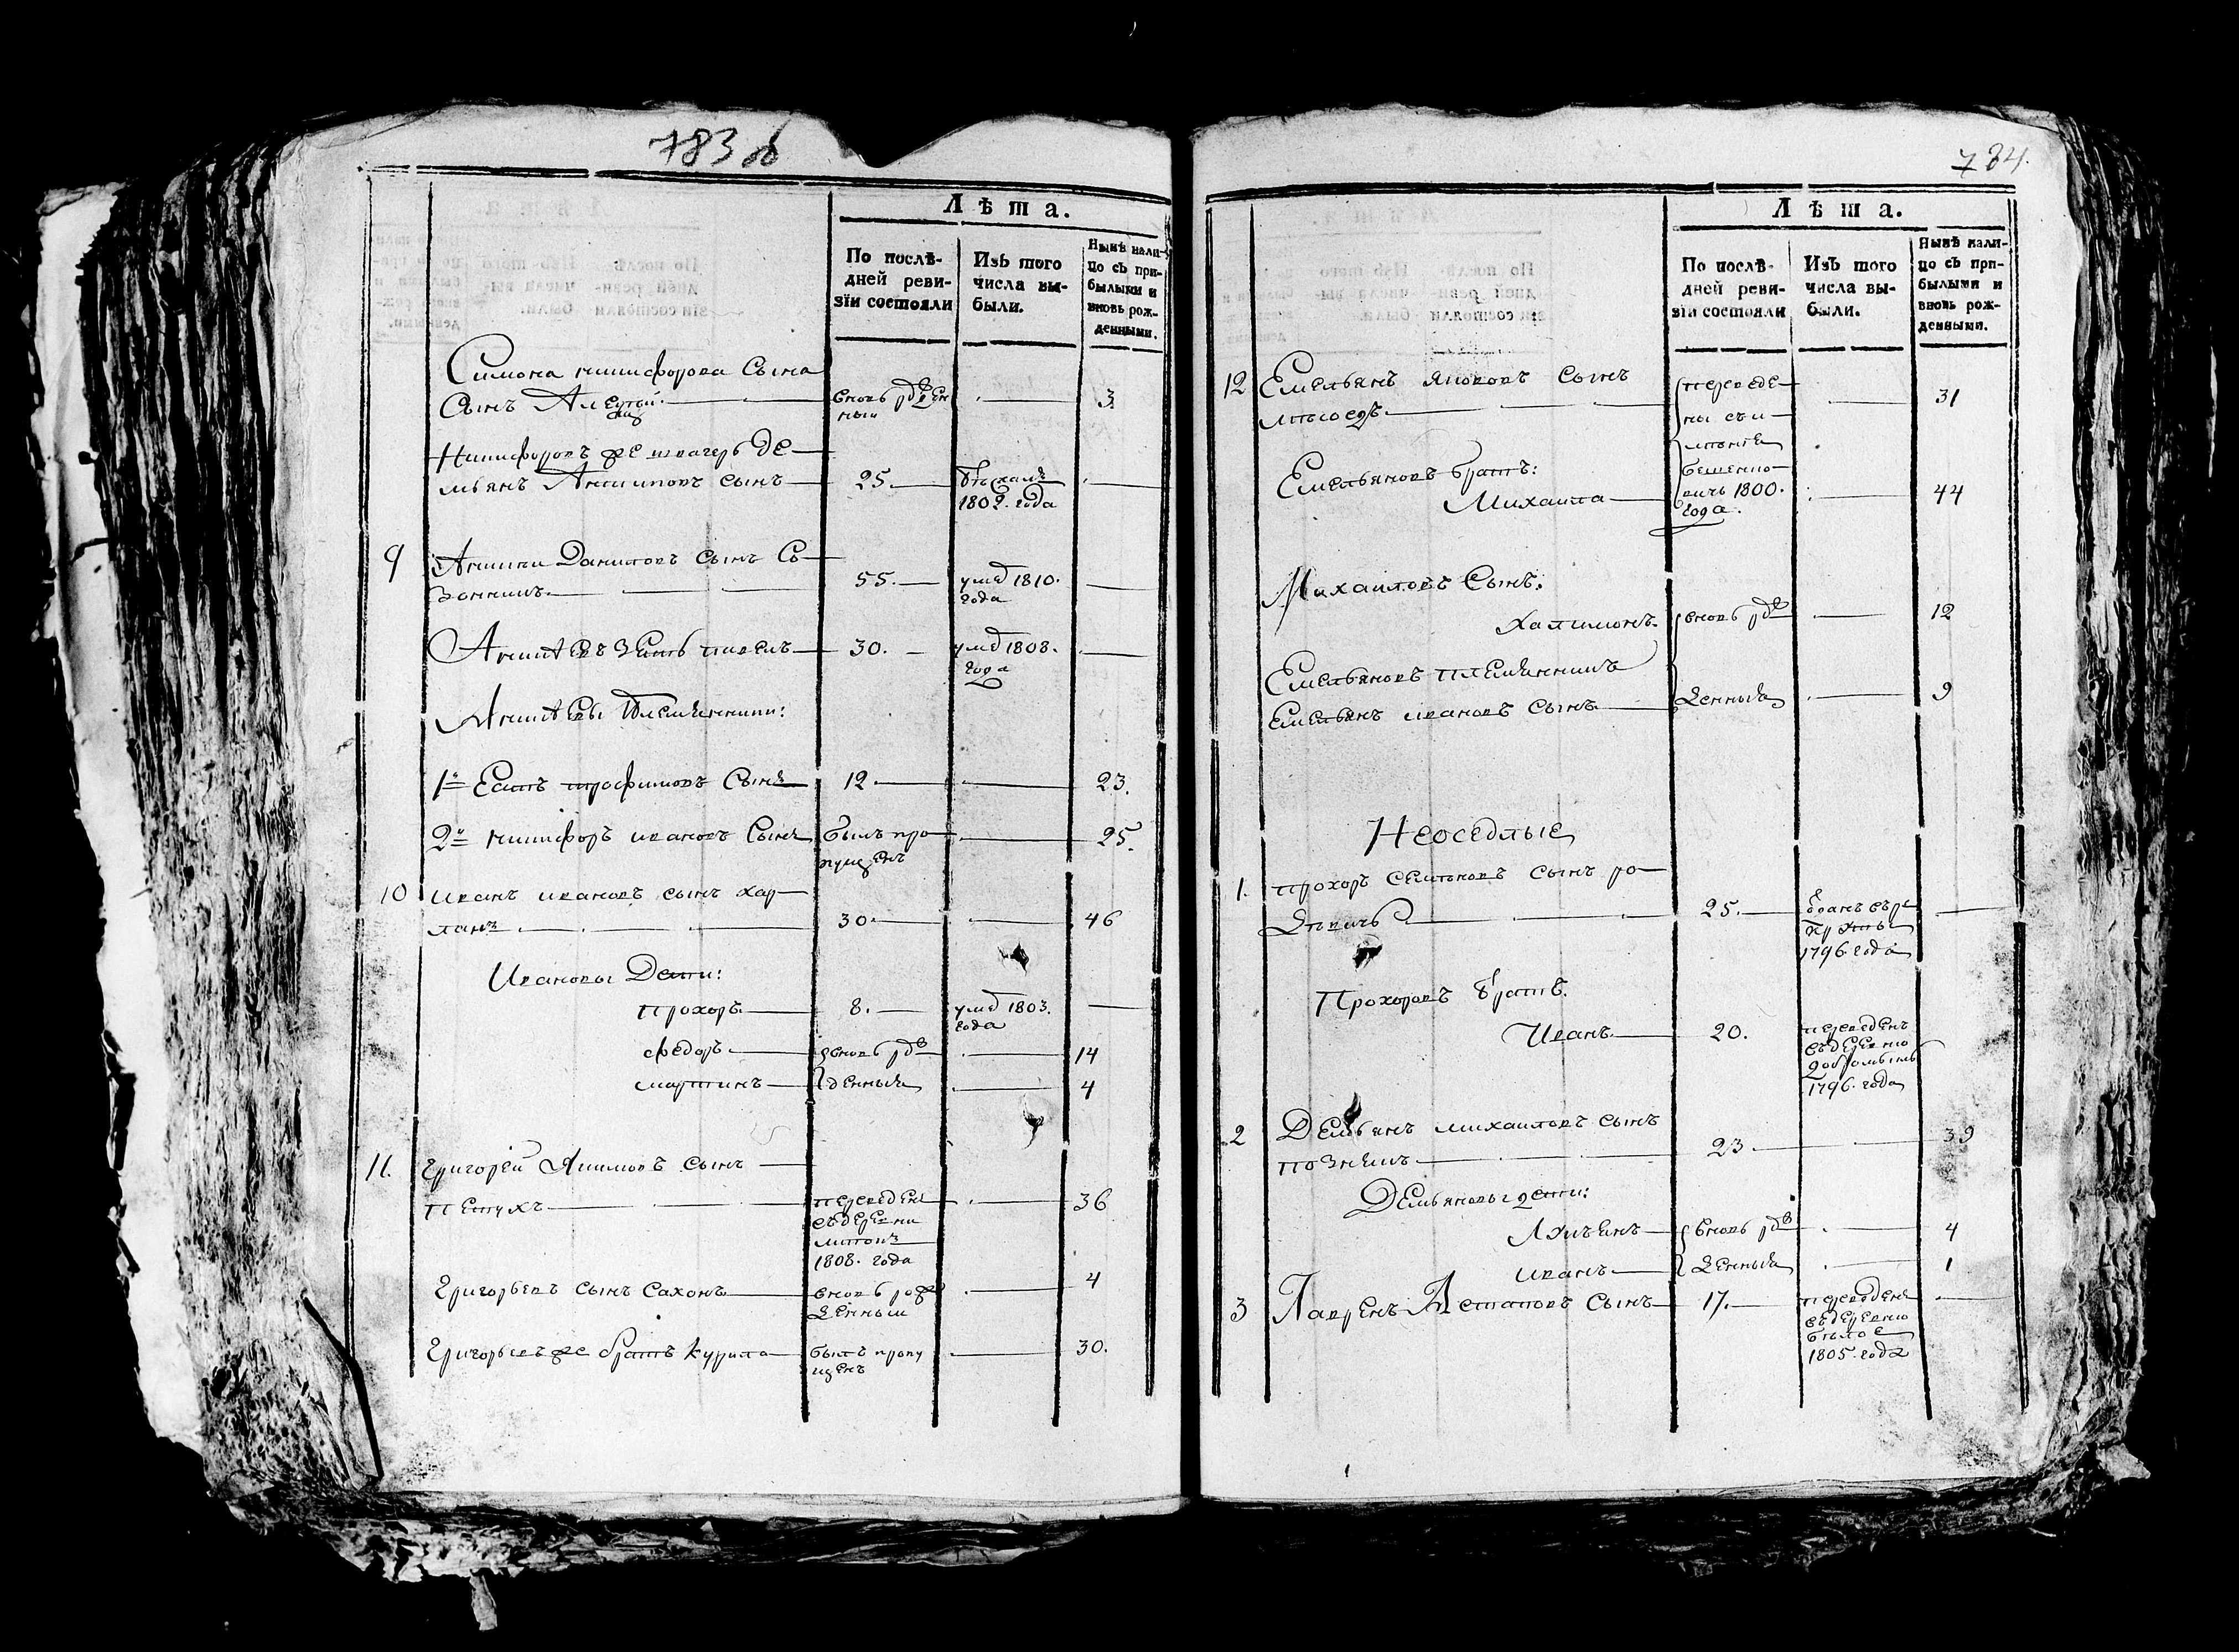 783 об
Лѣта.
По послѣ-
дней реви-
зіи состояли
Изъ того
числа вы-
были.
Нынѣ нали-
цо съ при-
былыми и
вновь рож-
денными.
Симона никифорова Сына
Сынъ Алексей
вновь рожден
ный
3
Никифоровъ же швагеръ де-
мьянъ Антиповъ сынъ
25.
1802. года
9
Аники Даниловъ Сынъ Со-
55.
умре 1810.
года
Аникѣевъ Зять павелъ
30.
умре 1808.
года
Аникѣевы Племянники:
1й Евтъ трофимовъ Сынъ
12
23.
2й никифоръ ивановъ Сынъ
былъ про
пущенъ
25.
10
иванъ ивановъ сынъ хар-
ланъ
30
46
Ивановы Дети:
прохоръ
8.
умре 1803.
года
федоръ
вновь рож
14
мартинъ
денныя
4
11.
григорей Якимовъ сынъ
петухъ
переведенъ
съ деревни
1808. года
36
григорьевъ сынъ Сахонъ
вновь рож
денный
4
григорьевъ же братъ курила
былъ пропу
щенъ
30.
784.
Лѣта.
По послѣ-
дней реви-
зіи состояли
Изъ того
числа вы-
были.
Нынѣ нали-
цо съ при-
былыми и
вновь рож-
денными.
12
Емельянъ яковъ сынъ
мясоедъ
переведе-
ны съ и-
мѣнія
1800.
года.
31
Емельяновъ братъ:
Михаила
44
Михаиловъ Сынъ:
Халимонъ
вновь рож
12
Емельяновъ племянникъ
Емельянъ ивановъ сынъ
денныя
9
Неоседлые
1.
прохоръ Семѣновъ сынъ ро-
25.
1796. года
Прохоровъ братъ.
Иванъ
20.
переведенъ
въ деревню
1796. года
2
Демьянъ михаиловъ сынъ
познякъ
23
39
Демьяновы дети:
Лукьянъ
вновь рож
4
иванъ
денныя
1
3
Лавренъ Астаповъ Сынъ
17.
переведенъ
въ деревню
былое
1805. года